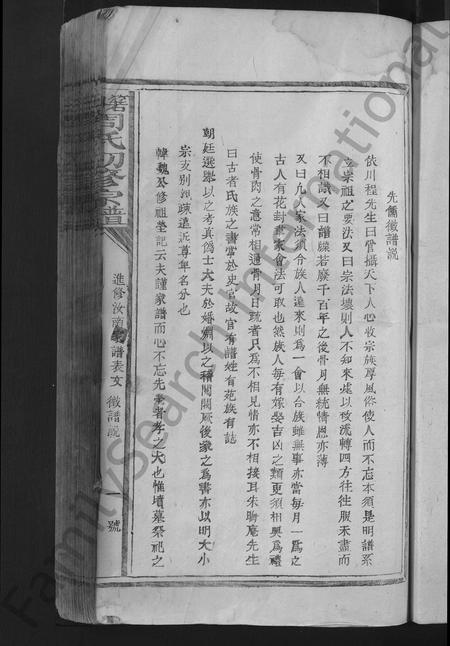 先儒徵譜說
依川程先生曰管攝天下人心收宗族厚風俗使人而不忘本須是明譜系
立宗祖之要法又曰宗法壞則人不知來處以致流轉四方往往服未盡而
不相識又曰譜牒若廢千百年之後骨月無統情恩亦薄
又曰凡人家法須令族人遠來則為一會以合族雖無事亦當每月一為之
古人有花封韋家會法可取也然族人每有嫁娶吉凶之類更須相與為禮
使骨肉之意常相通骨月日疏者只為不相見情亦不相接耳朱晦庵先生
曰古者氏族之書掌於史官故官有譜姓有苑族有誌
朝廷選舉以之考真偽士大夫於婚姻以之稽閥閱厥後家之為書亦以明大小
宗支別親疎遠近尊年名分也
韓魏公修祖塋記云夫謹家譜而心不忘先塋者孝之大也惟墳墓祭祀之
周氏初修宗譜
進修汝南家譜表文 徵譜說
一 號
FamilySearch International